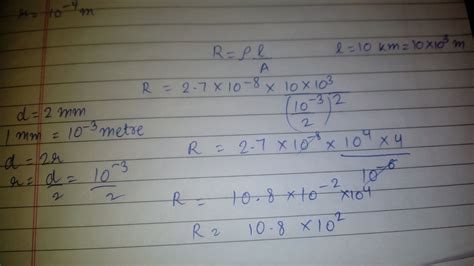 r = 10⁻⁴ m
R = ρ l / A
l = 10 km = 10 × 10³ m
R = 2.7 × 10⁻⁸ × 10 × 10³ / (10⁻³ / 2)²
d = 2 mm
1 mm = 10⁻³ metre
d = 2r
r = d / 2 = 10⁻³ / 2
R = 2.7 × 10⁻⁸ × 10⁴ × 4 / 10⁻⁶
R = 10.8 × 10⁻² × 10⁴
R = 10.8 × 10²